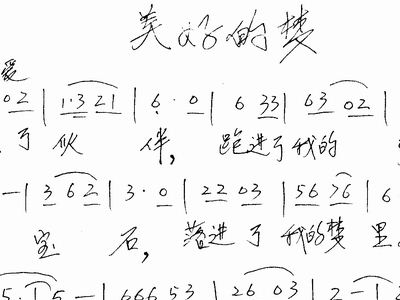 美好的梦
爱
02 | 1·3 21 | 6· 0 | 6 33 | 63 02 |
了 伙 伴, 跑进了我的
— | 3 62 | 3·0 | 22 03 | 56 76 | 6
宝 石, 落进了 我的梦里
5·15 — | 666 53 | 26 03 | 2 — 1 3